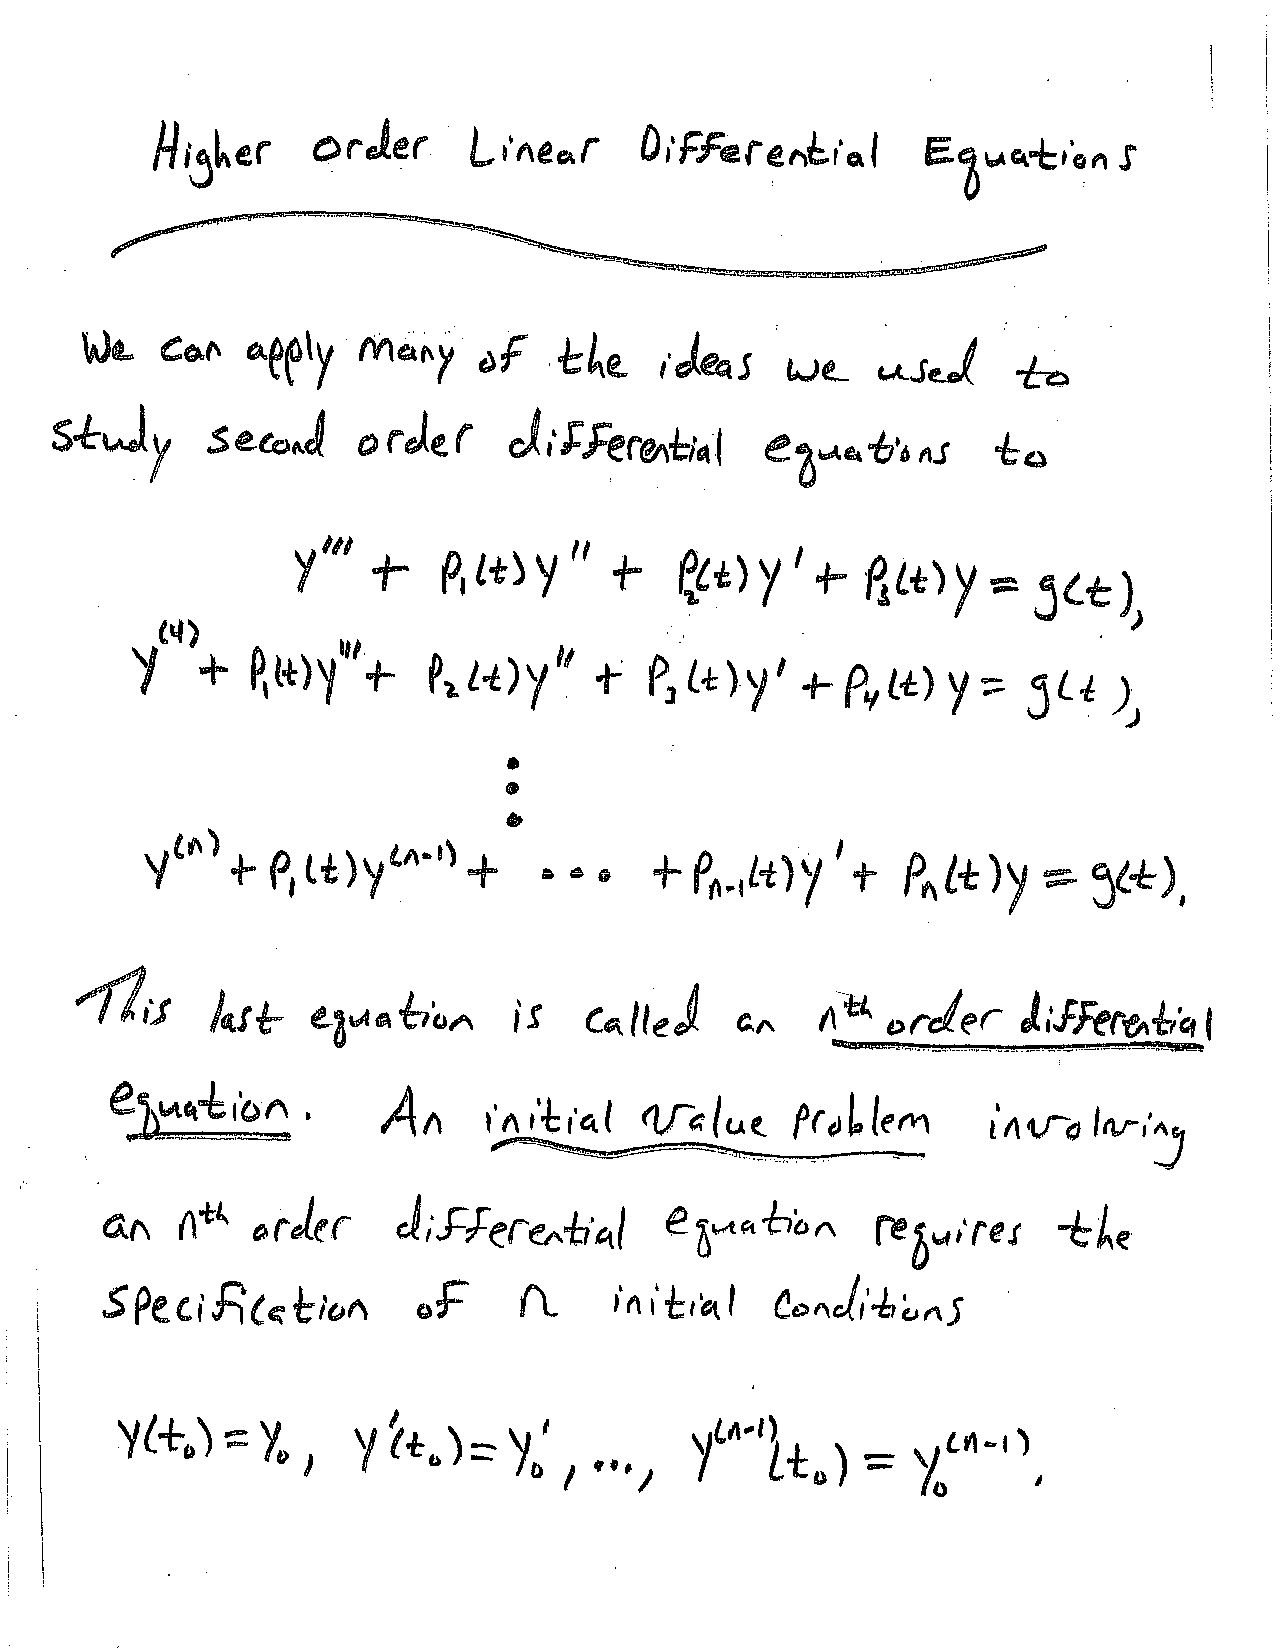 Higher Order Linear Differential Equations
We can apply many of the ideas we used to
study second order differential equations to
y''' + p₁(t)y'' + p₂(t)y' + p₃(t)y = g(t),
y⁽⁴⁾ + p₁(t)y''' + p₂(t)y'' + p₃(t)y' + p₄(t)y = g(t),
⋮
y⁽ⁿ⁾ + p₁(t)y⁽ⁿ⁻¹⁾ + ... + pₙ₋₁(t)y' + pₙ(t)y = g(t).
This last equation is called an nᵗʰ order differential
equation. An initial value problem involving
an nᵗʰ order differential equation requires the
specification of n initial conditions
y(t₀) = y₀, y'(t₀) = y₀', ..., y⁽ⁿ⁻¹⁾(t₀) = y₀⁽ⁿ⁻¹⁾.